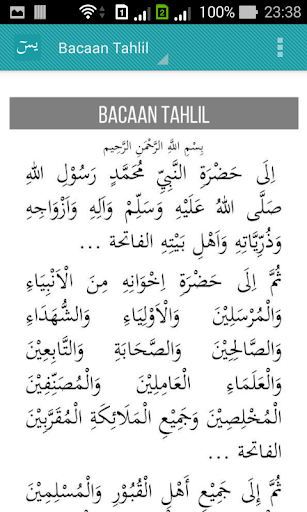 1 2 100% 23:38
يسٓ Bacaan Tahlil
BACAAN TAHLIL
بِسْمِ اللَّهِ الرَّحْمَنِ الرَّحِيمِ
اِلَى حَضْرَةِ النَّبِيِّ مُحَمَّدٍ رَسُوْلِ اللهِ
صَلَّى اللهُ عَلَيْهِ وَسَلِّمْ وَآلِهِ وَاَزْوَاجِهِ
وَذُرِّيَّاتِهِ وَاَهْلِ بَيْتِهِ الفاتحة ...
ثُمَّ اِلَى حَضْرَةِ اِخْوَانِهِ مِنَ الْاَنْبِيَاءِ
وَالْمُرْسَلِيْنَ وَالْاَوْلِيَاءِ وَالشُّهَدَاءِ
وَالصَّالِحِيْنَ وَالصَّحَابَةِ وَالتَّابِعِيْنَ
وَالْعُلَمَاءِ الْعَامِلِيْنَ وَالْمُصَنِّفِيْنَ
الْمُخْلِصِيْنَ وَجَمِيْعِ الْمَلَائِكَةِ الْمُقَرَّبِيْنَ
الفاتحة ...
ثُمَّ اِلَى جَمِيْعِ أَهْلِ الْقُبُوْرِ وَالْمُسْلِمِيْنَ